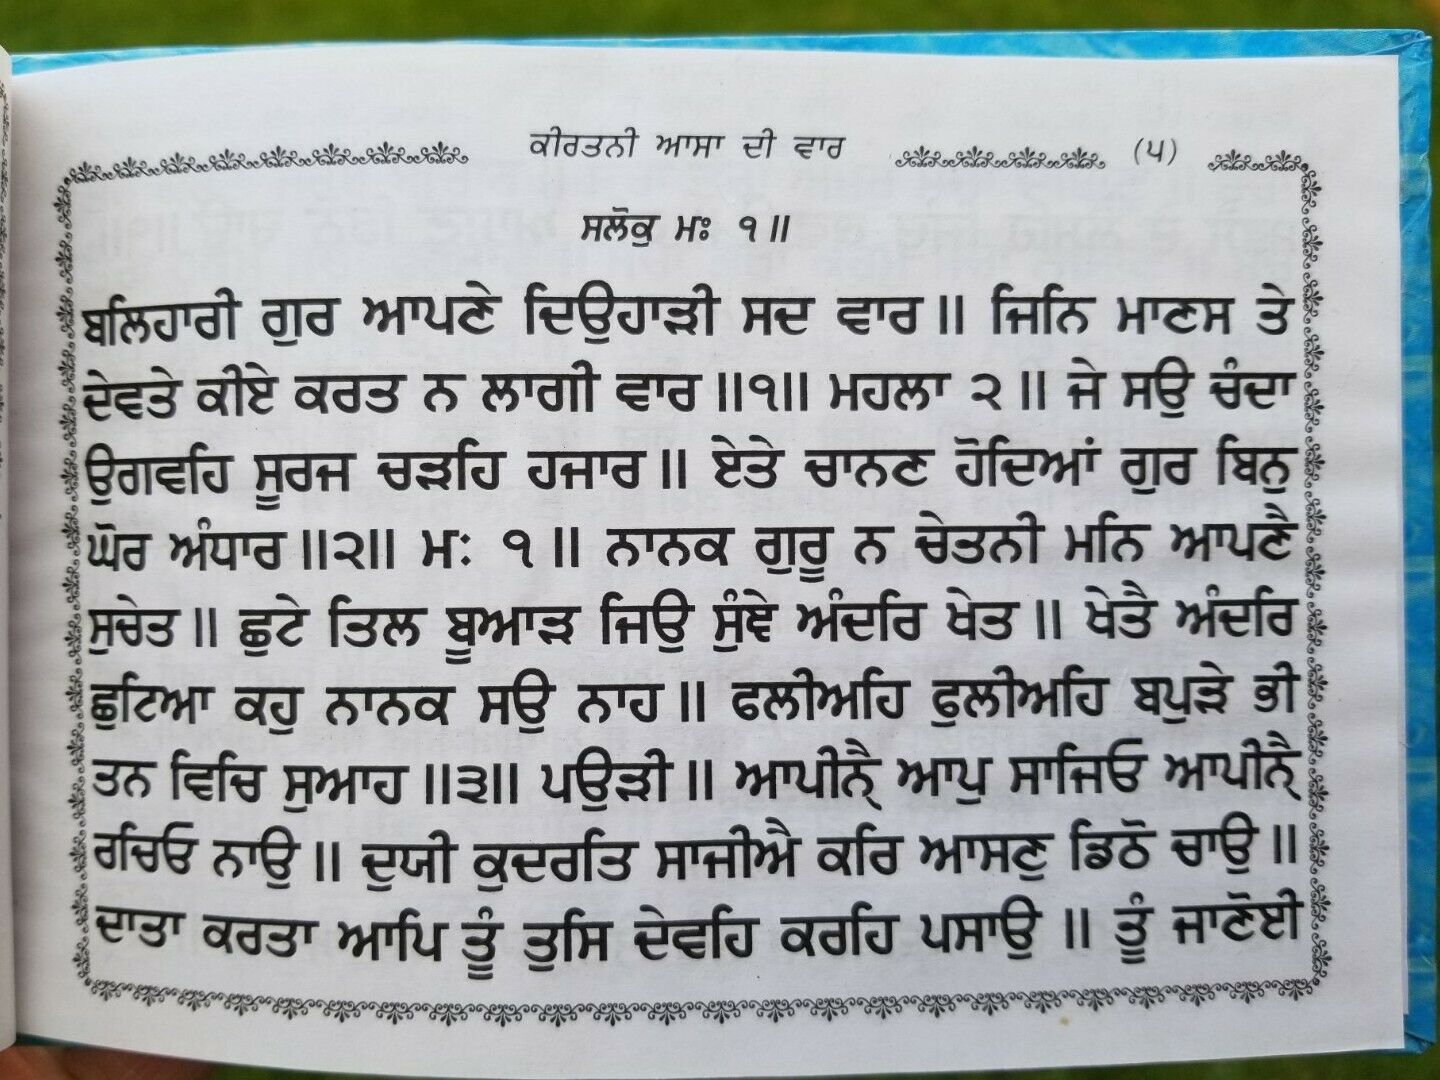 ਕੀਰਤਨੀ ਆਸਾ ਦੀ ਵਾਰ (੫)
ਸਲੋਕੁ ਮਃ ੧॥
ਬਲਿਹਾਰੀ ਗੁਰ ਆਪਣੇ ਦਿਉਹਾੜੀ ਸਦ ਵਾਰ॥ ਜਿਨਿ ਮਾਣਸ ਤੇ
ਦੇਵਤੇ ਕੀਏ ਕਰਤ ਨ ਲਾਗੀ ਵਾਰ॥੧॥ ਮਹਲਾ ੨॥ ਜੇ ਸਉ ਚੰਦਾ
ਉਗਵਹਿ ਸੂਰਜ ਚੜਹਿ ਹਜਾਰ॥ ਏਤੇ ਚਾਨਣ ਹੋਦਿਆਂ ਗੁਰ ਬਿਨੁ
ਘੋਰ ਅੰਧਾਰ॥੨॥ ਮਃ ੧॥ ਨਾਨਕ ਗੁਰੂ ਨ ਚੇਤਨੀ ਮਨਿ ਆਪਣੈ
ਸੁਚੇਤ॥ ਛੁਟੇ ਤਿਲ ਬੂਆੜ ਜਿਉ ਸੁੰਞੇ ਅੰਦਰਿ ਖੇਤ॥ ਖੇਤੈ ਅੰਦਰਿ
ਛੁਟਿਆ ਕਹੁ ਨਾਨਕ ਸਉ ਨਾਹ॥ ਫਲੀਅਹਿ ਫੁਲੀਅਹਿ ਬਪੁੜੇ ਭੀ
ਤਨ ਵਿਚਿ ਸੁਆਹ॥੩॥ ਪਉੜੀ॥ ਆਪੀਨੑੈ ਆਪੁ ਸਾਜਿਓ ਆਪੀਨੑੈ
ਰਚਿਓ ਨਾਉ॥ ਦੁਯੀ ਕੁਦਰਤਿ ਸਾਜੀਐ ਕਰਿ ਆਸਣੁ ਡਿਠੋ ਚਾਉ॥
ਦਾਤਾ ਕਰਤਾ ਆਪਿ ਤੂੰ ਤੁਸਿ ਦੇਵਹਿ ਕਰਹਿ ਪਸਾਉ॥ ਤੂੰ ਜਾਣੋਈ